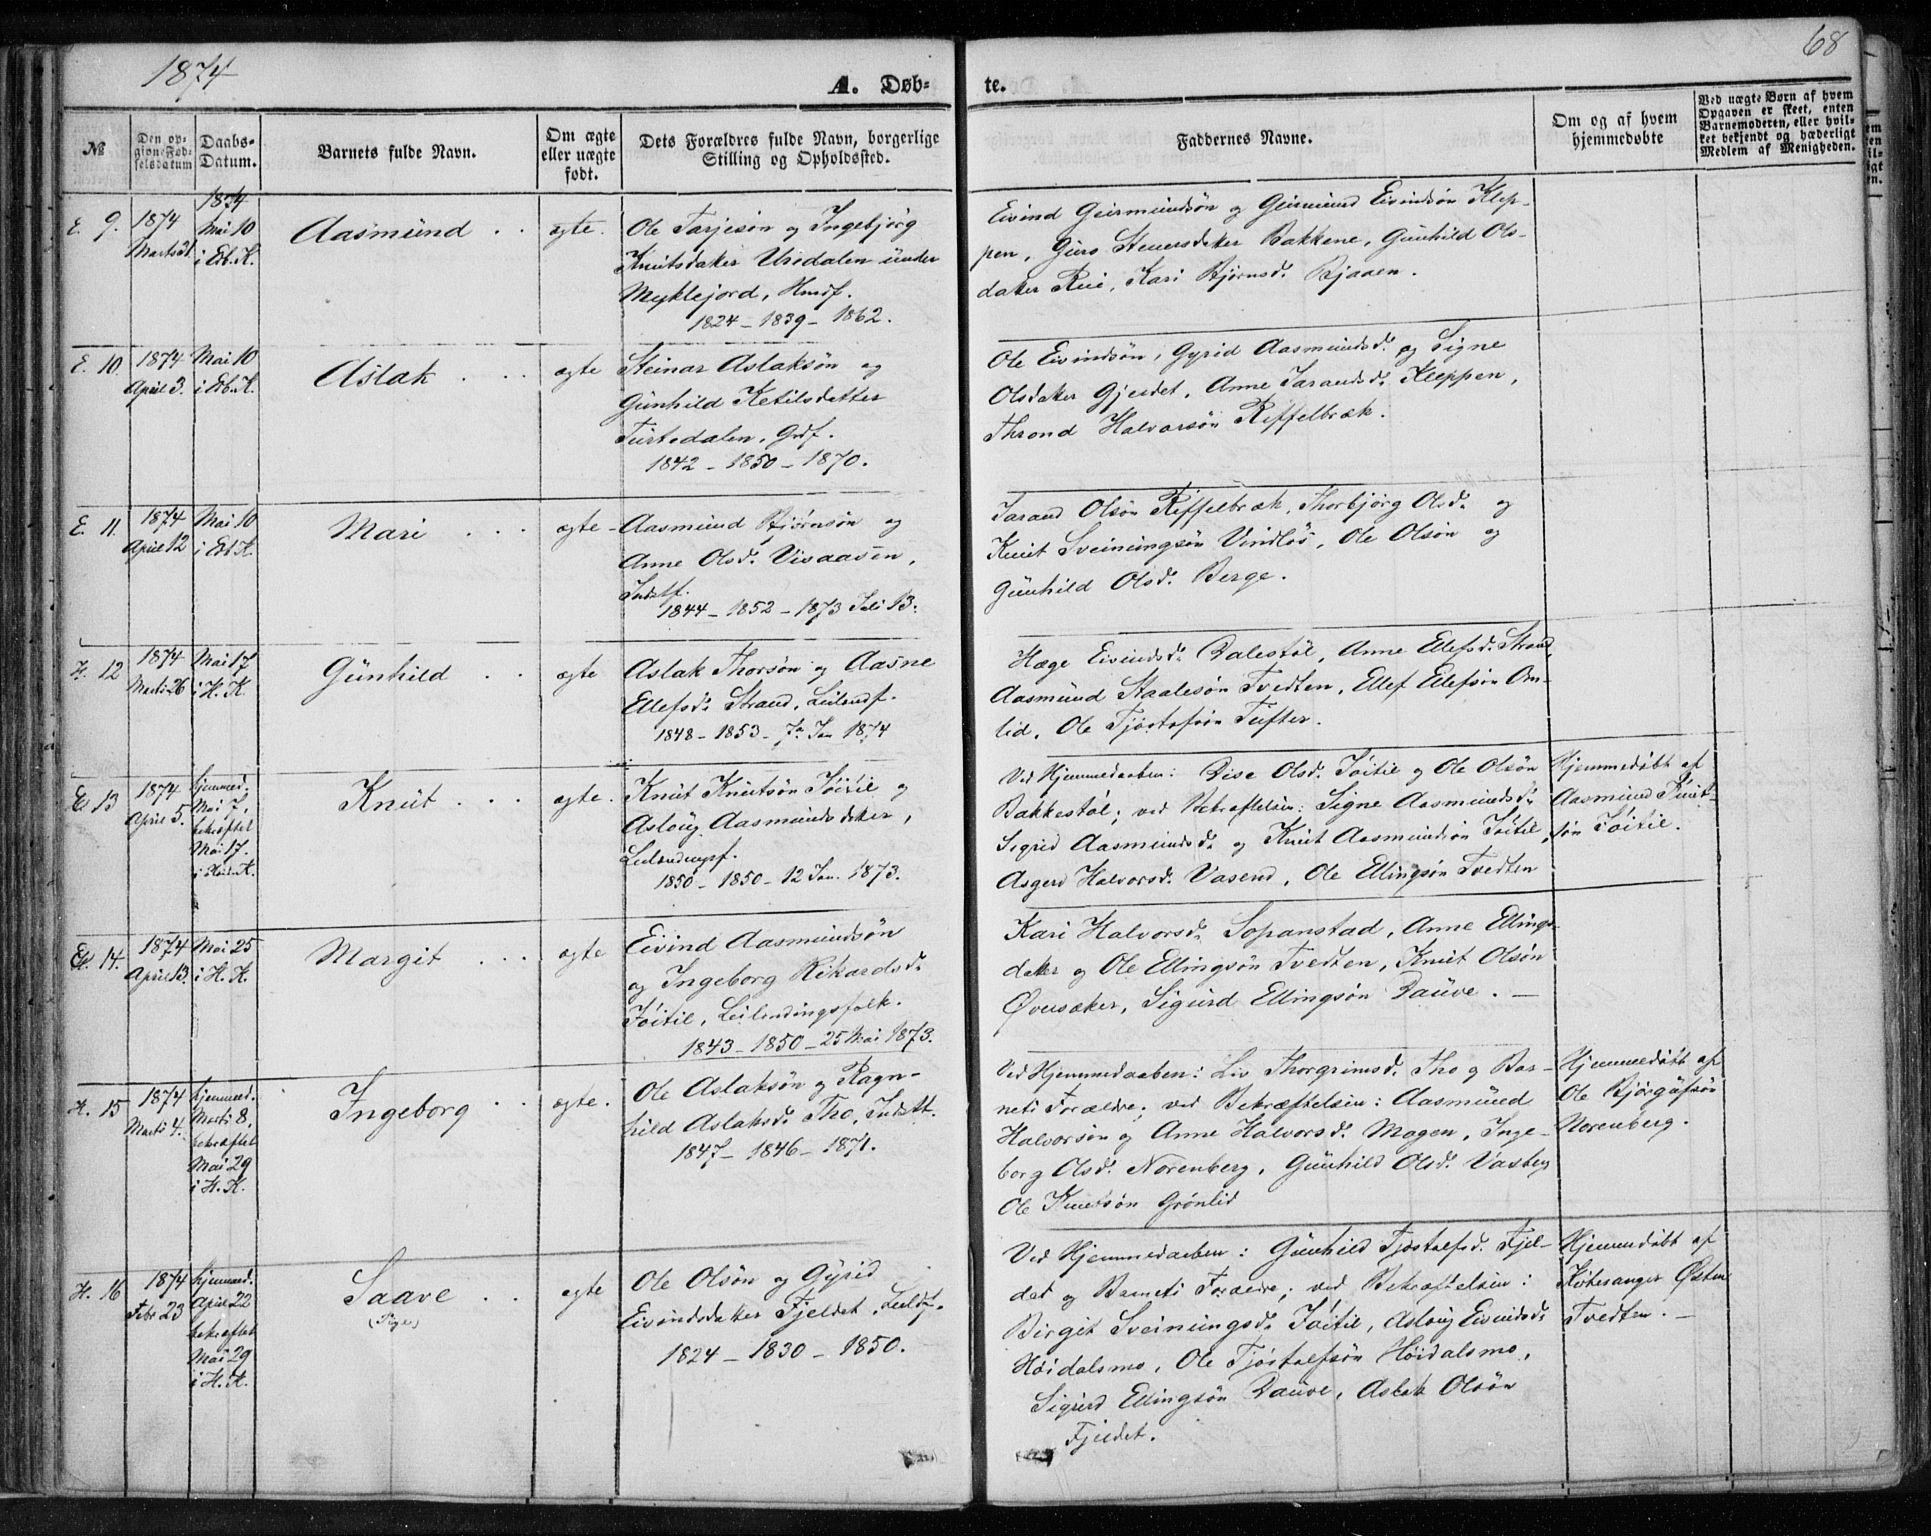 1874
68
A. Døb-
te.
№
Den op-
givne Fød-
selsdatum
Daabs-
Datum.
Barnets fulde Navn.
Om ægte
eller uægte
født.
Dets Forældres fulde Navn, borgerlige
Stilling og Opholdssted.
Faddernes Navne.
Om og af hvem
hjemmedøbte
Ved uægte Børn af hvem
Opgaven er skeet, enten
Barnemoderen, eller hvil-
ket bekjendt og hæderligt
Medlem af Menigheden.
E. 9.
1874
Marts 21
1874
Mai 10
i Eb. K.
Aasmund . .
ægte.
Ole Tarjeisøn og Ingebjørg
Knutsdatter Uredalen under
Myklejord, Hmdf.
1824 - 1839 - 1862.
Eivind Geirmundsøn og Geirmund Eivindsøn Klep-
pen, Guro Steuersdatter Bakkene, Gunhild Ols-
datter Rue, Kari Bjørnsd. Bjaaen.
E. 10.
1874
April 3.
Mai 10
i Eb. K.
Aslak . . .
ægte
Steinar Aslaksøn og
Gunhild Ketilsdatter
Turtedalen, Grdf.
1842 - 1850 - 1870.
Ole Eivindsøn, Gyrid Aasmundsd. og Signe
Olsdatter Gjerdet, Anne Tarandsd. Kleppen,
Thrond Halvorsøn Riffelbræk.
E. 11.
1874
April 12
Mai 10
i Eb. K.
Mari . . .
ægte -
Aasmund Bjørnsøn og
Anne Olsd. Visaasen,
Indstf.
1844 - 1852 - 1873 Juli 13.
Tarand Olsøn Riffelbræk, Thorbjørg Olsd. og
Knut Sveinungsøn Vindløs, Ole Olsøn og
Gunhild Olsd. Berge.
12
1874
Marts 26
Mai 17
i H. K.
Gunhild . .
ægte
Aslak Thorsøn og Aasne
Ellefsd. Strand, Leilendf.
1848 - 1853 - Jan 1874
Hæge Eivindsd. Dalestøl, Anne Ellefsd. Strand,
Aasmund Staalesøn Tvedten, Ellef Ellefsøn Om-
lid, Ole Tjøstofsøn Tufter.
13
1874
April 5.
hjemmed.
Mai 7,
bekræftet
Mai 17.
Knut . . .
ægte.
Knut Knutsøn Jøitil og
Asloug Aasmundsdatter,
Leilendingsf.
1850 - 1850 - 12 Jan. 1873.
Ved Hjemmedaaben: Dise Olsd. Jøitil og Ole Olsøn
Bakkestøl; ved Bekræftelsen: Signe Aasmundsd.
Sigrid Aasmundsd. og Knut Aasmundsøn Jøitil,
Asgerd Halvorsd. Vasend, Ole Ellingsøn Tvedten
Hjemmedøbt af
Aasmund Knut-
søn Jøitil.
14.
1874
April 13.
Mai 25
i H. K.
Margit . . .
ægte
Eivind Aasmundsøn
og Ingeborg Rikardsd.
Jøitil, Leilendingsfolk.
1843 - 1850 - 25 Mai 1873.
Kari Halvorsd. Sopanstad, Anne Ellings-
datter og Ole Ellingsøn Tvedten, Knut Olsøn
Øversaker, Sigurd Ellingsøn Dauve. -
H. 15
1874
Marts 4.
hjemmed.
Marts 8,
bekræftet
Mai 29
i H. K.
Ingeborg . .
ægte.
Ole Aslaksøn og Ragn-
hild Aslaksd. Tho, Indstf.
1847 - 1846 - 1871.
Ved Hjemmedaaben: Liv Thorgrimsd. Tho og Bar-
nets Forældre; ved Bekræftelsen: Aasmund
Halvorsøn og Anne Halvorsd. Mogen, Inge-
borg Olsd. Norenberg, Gunhild Olsd. Vasbeg
Ole Knutsøn Grønlid
Hjemmedøbt af
Ole Bjørgufsøn
Norenberg.
H. 16
1874
Febr 23
hjemmed.
April 22
bekræftet
Mai 29
i H. K.
Saave . .
(Pige)
ægte
Ole Olsøn og Gyrid
Eivindsdatter Fjeldet, Leildf.
1824 - 1830 - 1850.
Ved Hjemmedaaben: Gunhild Tjøstolfsd. Fjel-
det og Barnets Forældre; ved Bekræftelsen:
Birgit Sveinungsd. Jøitil, Asloug Eivindsd.
Høidalsmo, Ole Tjøstolfsøn Høidalsmo,
Sigurd Ellingsøn Dauve, Aslak Olsøn
Fjeldet.
Hjemmedøbt af
Kirkesanger Østen
Tvedten. -